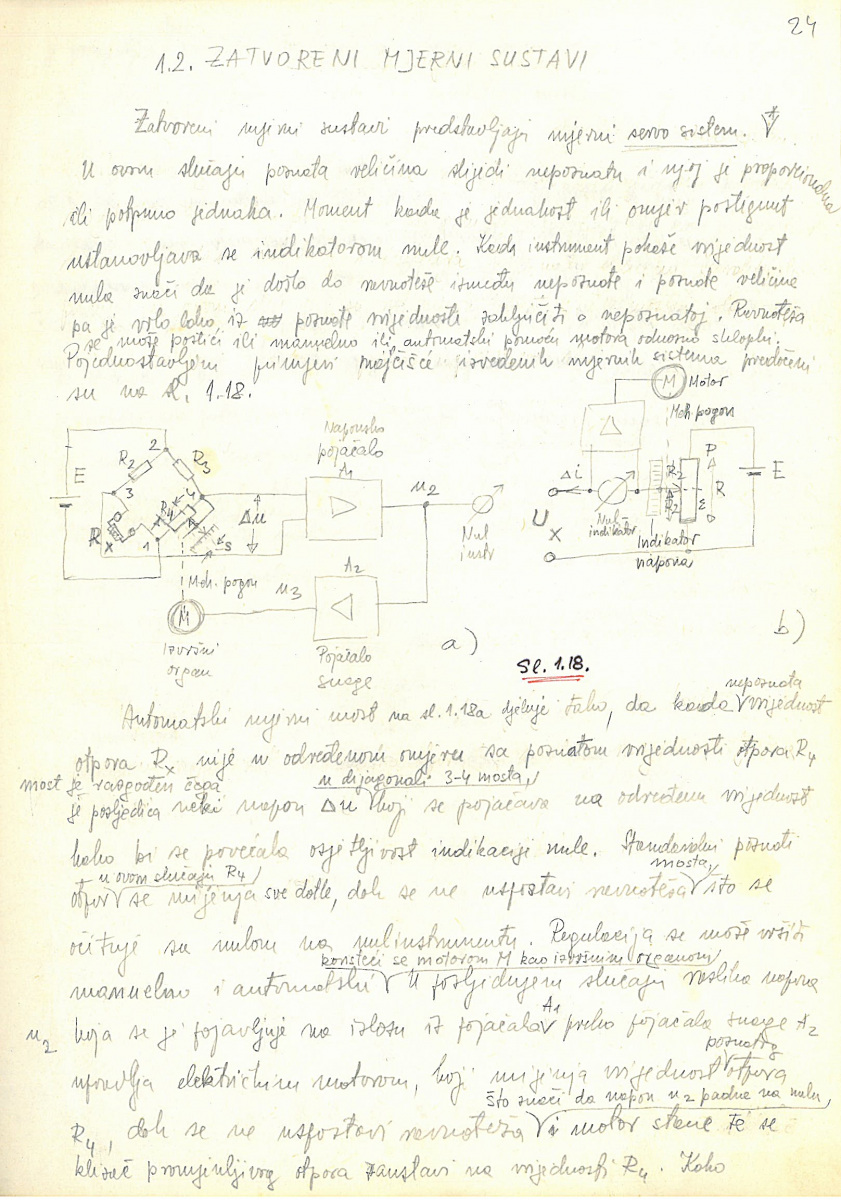 24
1.2. ZATVORENI MJERNI SUSTAVI
Zatvoreni mjerni sustavi predstavljaju mjerni servo sistem.
U ovom slučaju poznata veličina slijedi nepoznatu i njoj je proporcionalna
ili potpuno jednaka. Moment kada je jednakost ili omjer postignut
ustanovljava se indikatorom nule. Kada instrument pokaže vrijednost
nula znači da je došlo do ravnoteže između nepoznate i poznate veličine
pa je vrlo lako iz poznate vrijednosti zaključiti o nepoznatoj. Ravnoteža
se može postići ili manuelno ili automatski pomoću motora odnosno sklopki.
Pojednostavljeni primjeri najčišće izvedenih mjernih sistema predočeni
su na sl. 1.18.
M Motor
Meh. pogon
Naponsko
pojačalo
A1
E
R2
2
R3
3
4
R4
Rx
1
s
Δu
u2
Nul
instr
Meh. pogon
M
u3
A2
Izvršni
organ
Pojačalo
snage
a)
Δi
Ux
Nul
indikator
Indikator
napona
P
R
E
b)
Sl. 1.18.
nepoznata
Automatski mjerni most na sl. 1.18a djeluje tako, da kada vrijednost
otpora Rx nije u određenom omjeru sa poznatom vrijednosti otpora R4
most je razgođen čega
u dijagonali 3-4 mosta,
je posljedica neki napon Δu koji se pojačava na određenu vrijednost
kako bi se povećala osjetljivost indikacije nule. Standardni poznati
mosta,
u ovom slučaju R4
otpor se mijenja sve dotle, dok se ne uspostavi ravnoteža što se
očituje sa nulom na nulinstrumentu. Regulacija se može vršiti
koristeći se motorom M kao izvršnim organom
manuelno i automatski U posljednjem slučaju razlika napona
u2 koja se je pojavljuje na izlazu iz pojačala A1 preko pojačala snage A2
poznatog
upravlja električnim motorom, koji mijenja vrijednost otpora
što znači da napon u2 padne na nulu,
R4, dok se ne uspostavi ravnoteža i motor stane te se
klizač promjenljivog otpora zaustavi na vrijednosti R4. Kako